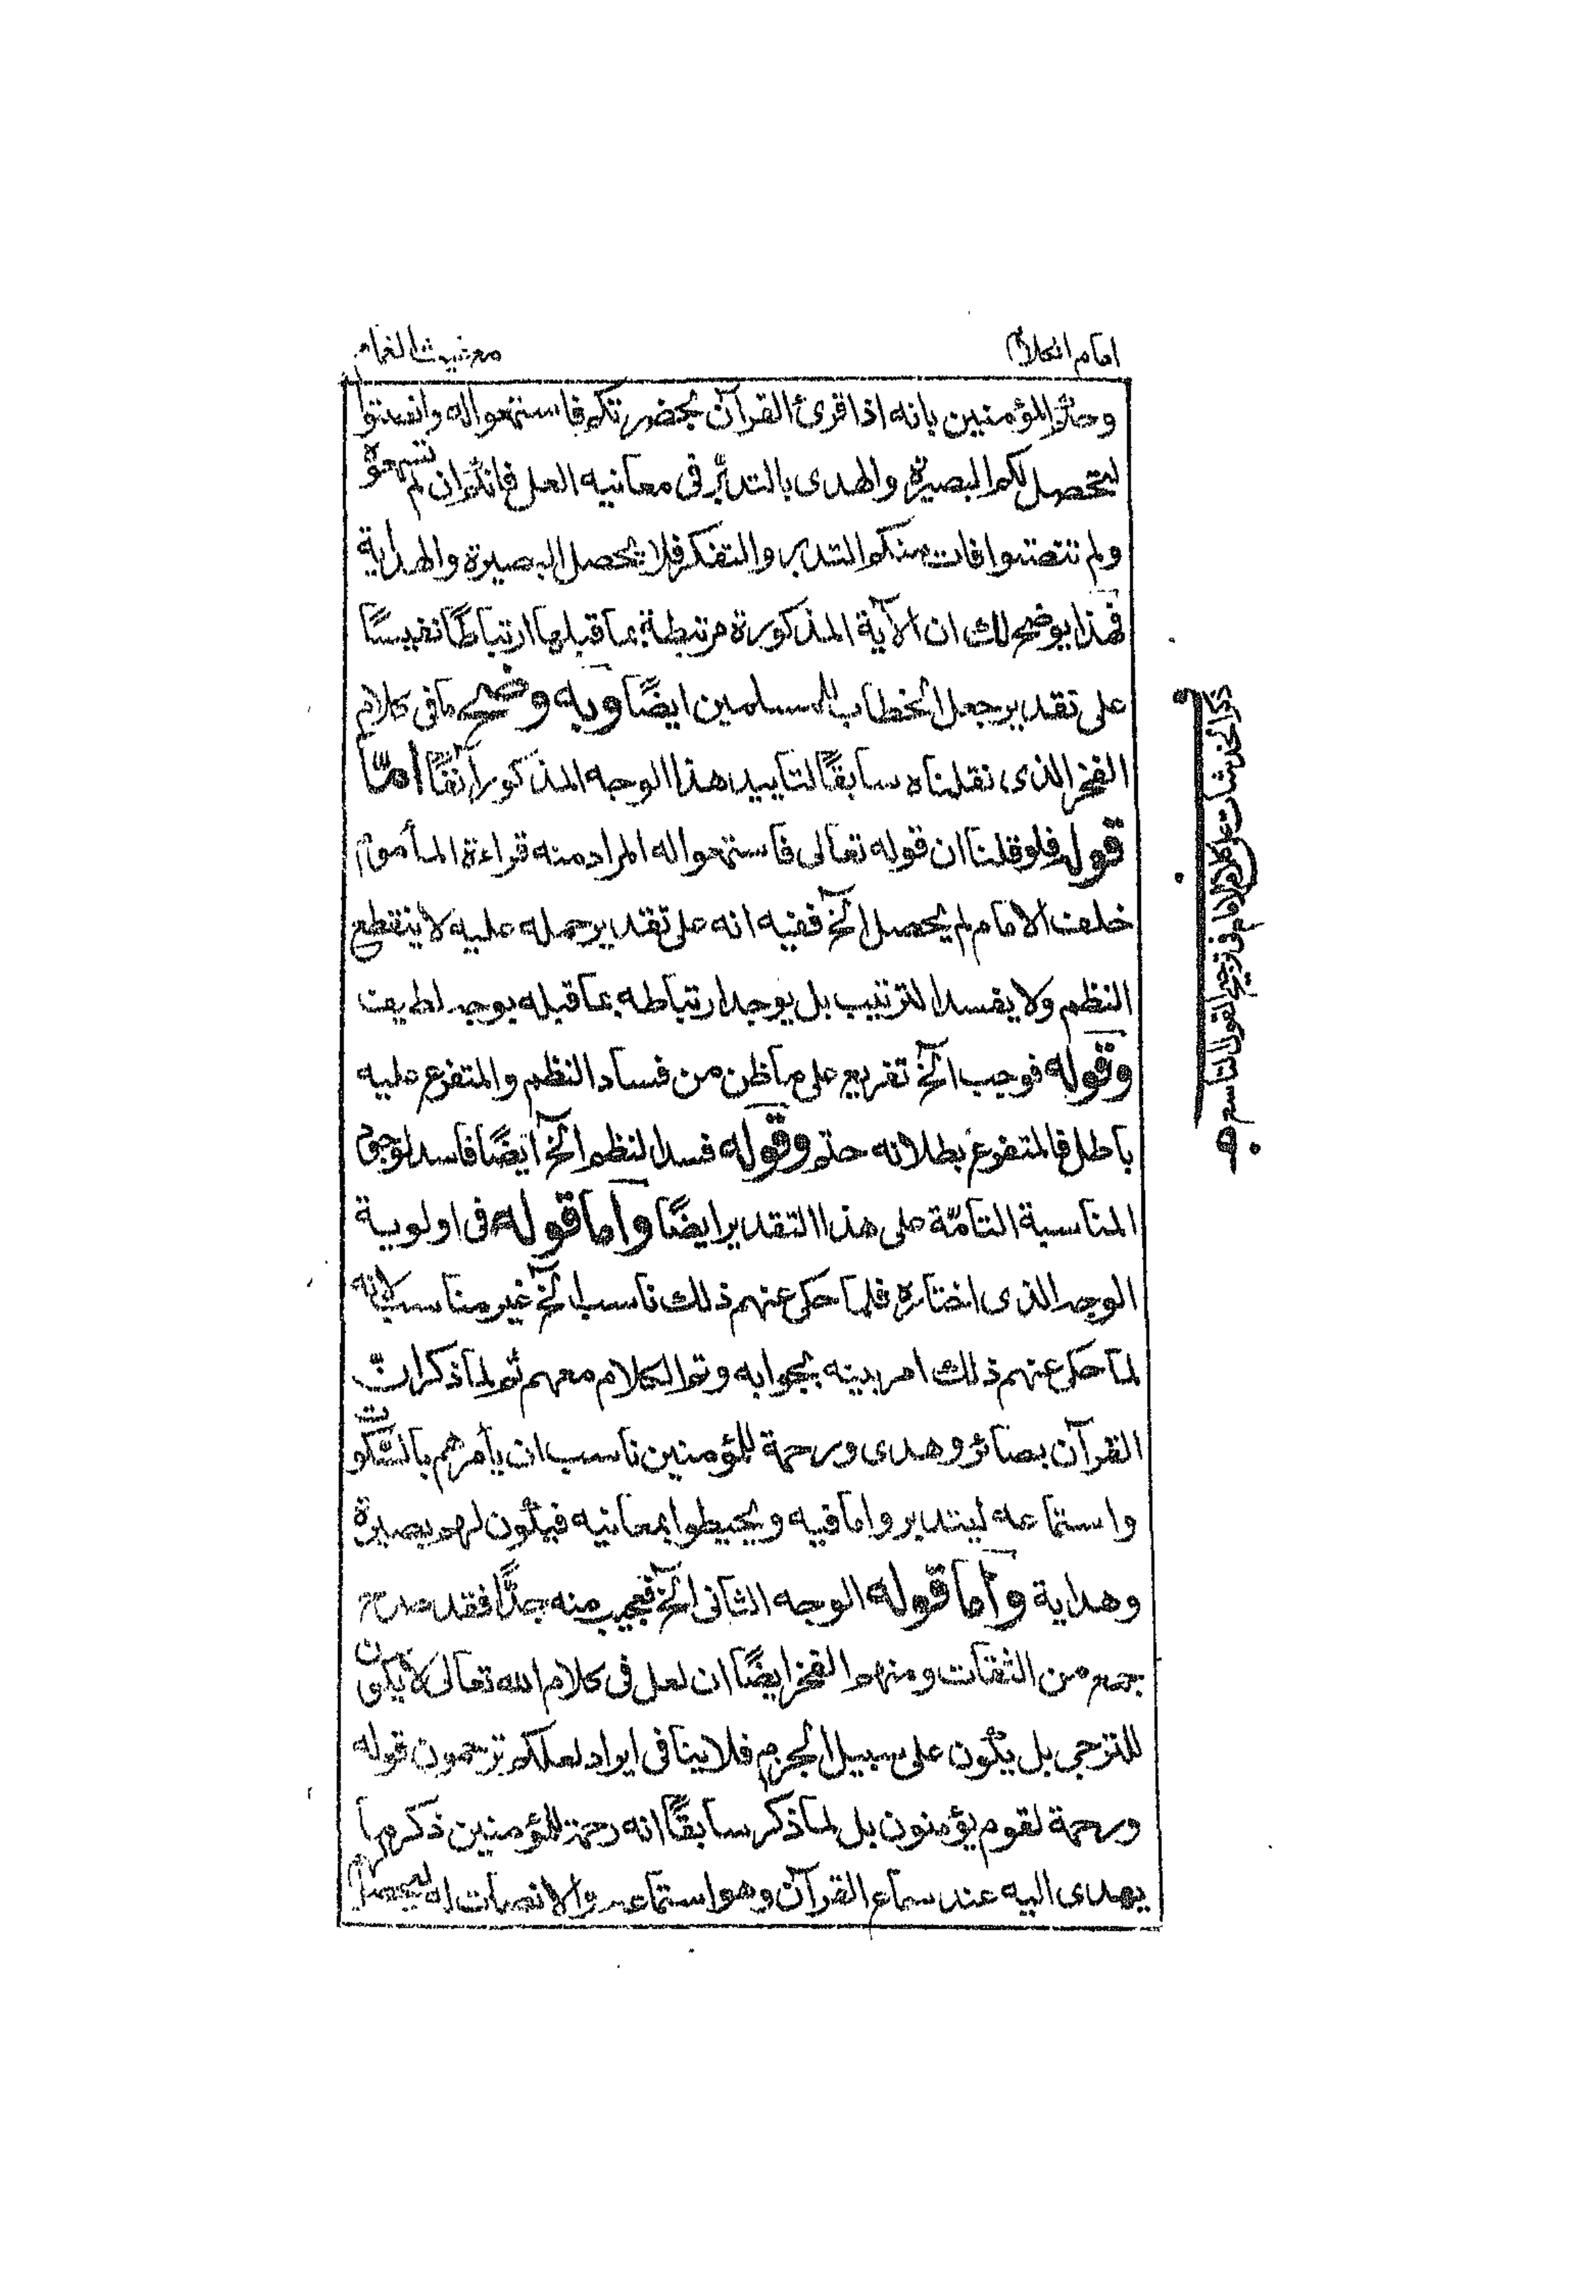 امام الكلام
مع غيث الغمام
وحذر المؤمنين بانه اذا قرئ القرآن بحضرتكم فاستمعوا له وانصتوا
لتحصل لكم البصيرة والهدى بالتدبر فى معانيه العل فانكم ان لم تسمعوه
ولم تنصتوا فات منكم التدبر والتفكر فلا يحصل البصيرة والهداية
فهذا يوضح لك ان الآية المذكورة مرتبطة بما قبلها ارتباطًا نفيسًا
على تقدير جعل الخطاب للمسلمين ايضًا وبه وضح ما فى كلام
الفخر الذى نقلناه سابقًا لتاييد هذا الوجه المذكور آنفًا امّا
قوله فلو قلنا ان قوله تعالى فاستمعوا له المراد منه قراءة المأموم
خلف الامام لم يحصل الخ ففيه انه على تقدير حمله عليه لا ينقطع
النظم ولا يفسد الترتيب بل يوجد ارتباطه بما قبله بوجه لطيف
وقوله فوجب الخ تفريع على ما ظن من فساد النظم والمتفرع عليه
باطل فالمتفرع بطلانه حتم وقوله فسد النظم الخ ايضًا فاسد لوجود
المناسبة التامّة على هذا التقدير ايضًا وأما قوله فى اولوية
الوجه الذى اختاره فلما حكى عنهم ذلك ناسب الخ غير مناسب لانه
لما حكى عنهم ذلك امر بينه بجوابه وتم الكلام معهم ثم لما ذكر انّ
القرآن بصائر وهدى ورحمة للمؤمنين ناسب ان يأمرهم بالسكوت
واستماعه ليتدبروا ما فيه ويحيطوا بمعانيه فيكون لهم بصيرة
وهداية وأما قوله الوجه الثانى الخ فعجيب منه جدًّا فقد صرح
جمع من الثقات ومنهم الفخر ايضًا ان لعل فى كلام الله تعالى لا يكون
للترجي بل يكون على سبيل الجزم فلا ينافى ايراد لعلكم ترحمون قوله
ورحمة لقوم يؤمنون بل لما ذكر سابقًا انه رحمة للمؤمنين ذكر ما
يهدى اليه عند سماع القرآن وهو استماعه والانصات له ليحصل لهم